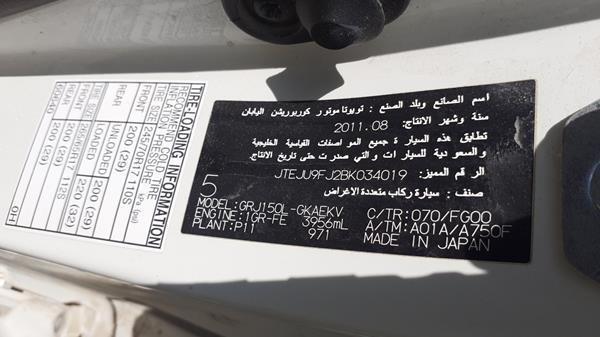 اسم الصانع وبلد الصنع : تويوتا موتور كوربوريشن اليابان
سنة وشهر الانتاج: 2011.08
تطابق هذه السيارة جميع المواصفات القياسية الخليجية
والسعودية للسيارات والتي صدرت حتى تاريخ الانتاج.
الرقم المميز: JTEJU9FJ2BK034019
صنف : سيارة ركاب متعددة الاغراض
5
MODEL:GRJ150L-GKAEKV C/TR:070/FG00
ENGINE:1GR-FE 3956mL A/TM:A01A/A750F
PLANT:P11 971 MADE IN JAPAN
TIRE-LOADING INFORMATION
RECOMMENDED COLD TIRE
INFLATION PRESSURE kPa (psi)
TIRE SIZE UNLOADED
245/70R17 110S
FRONT 200 (29)
REAR 200 (29)
TIRE SIZE LOADED
FRONT 200 (29) 200 (29)
REAR 200 (29) 220 (32)
60A40